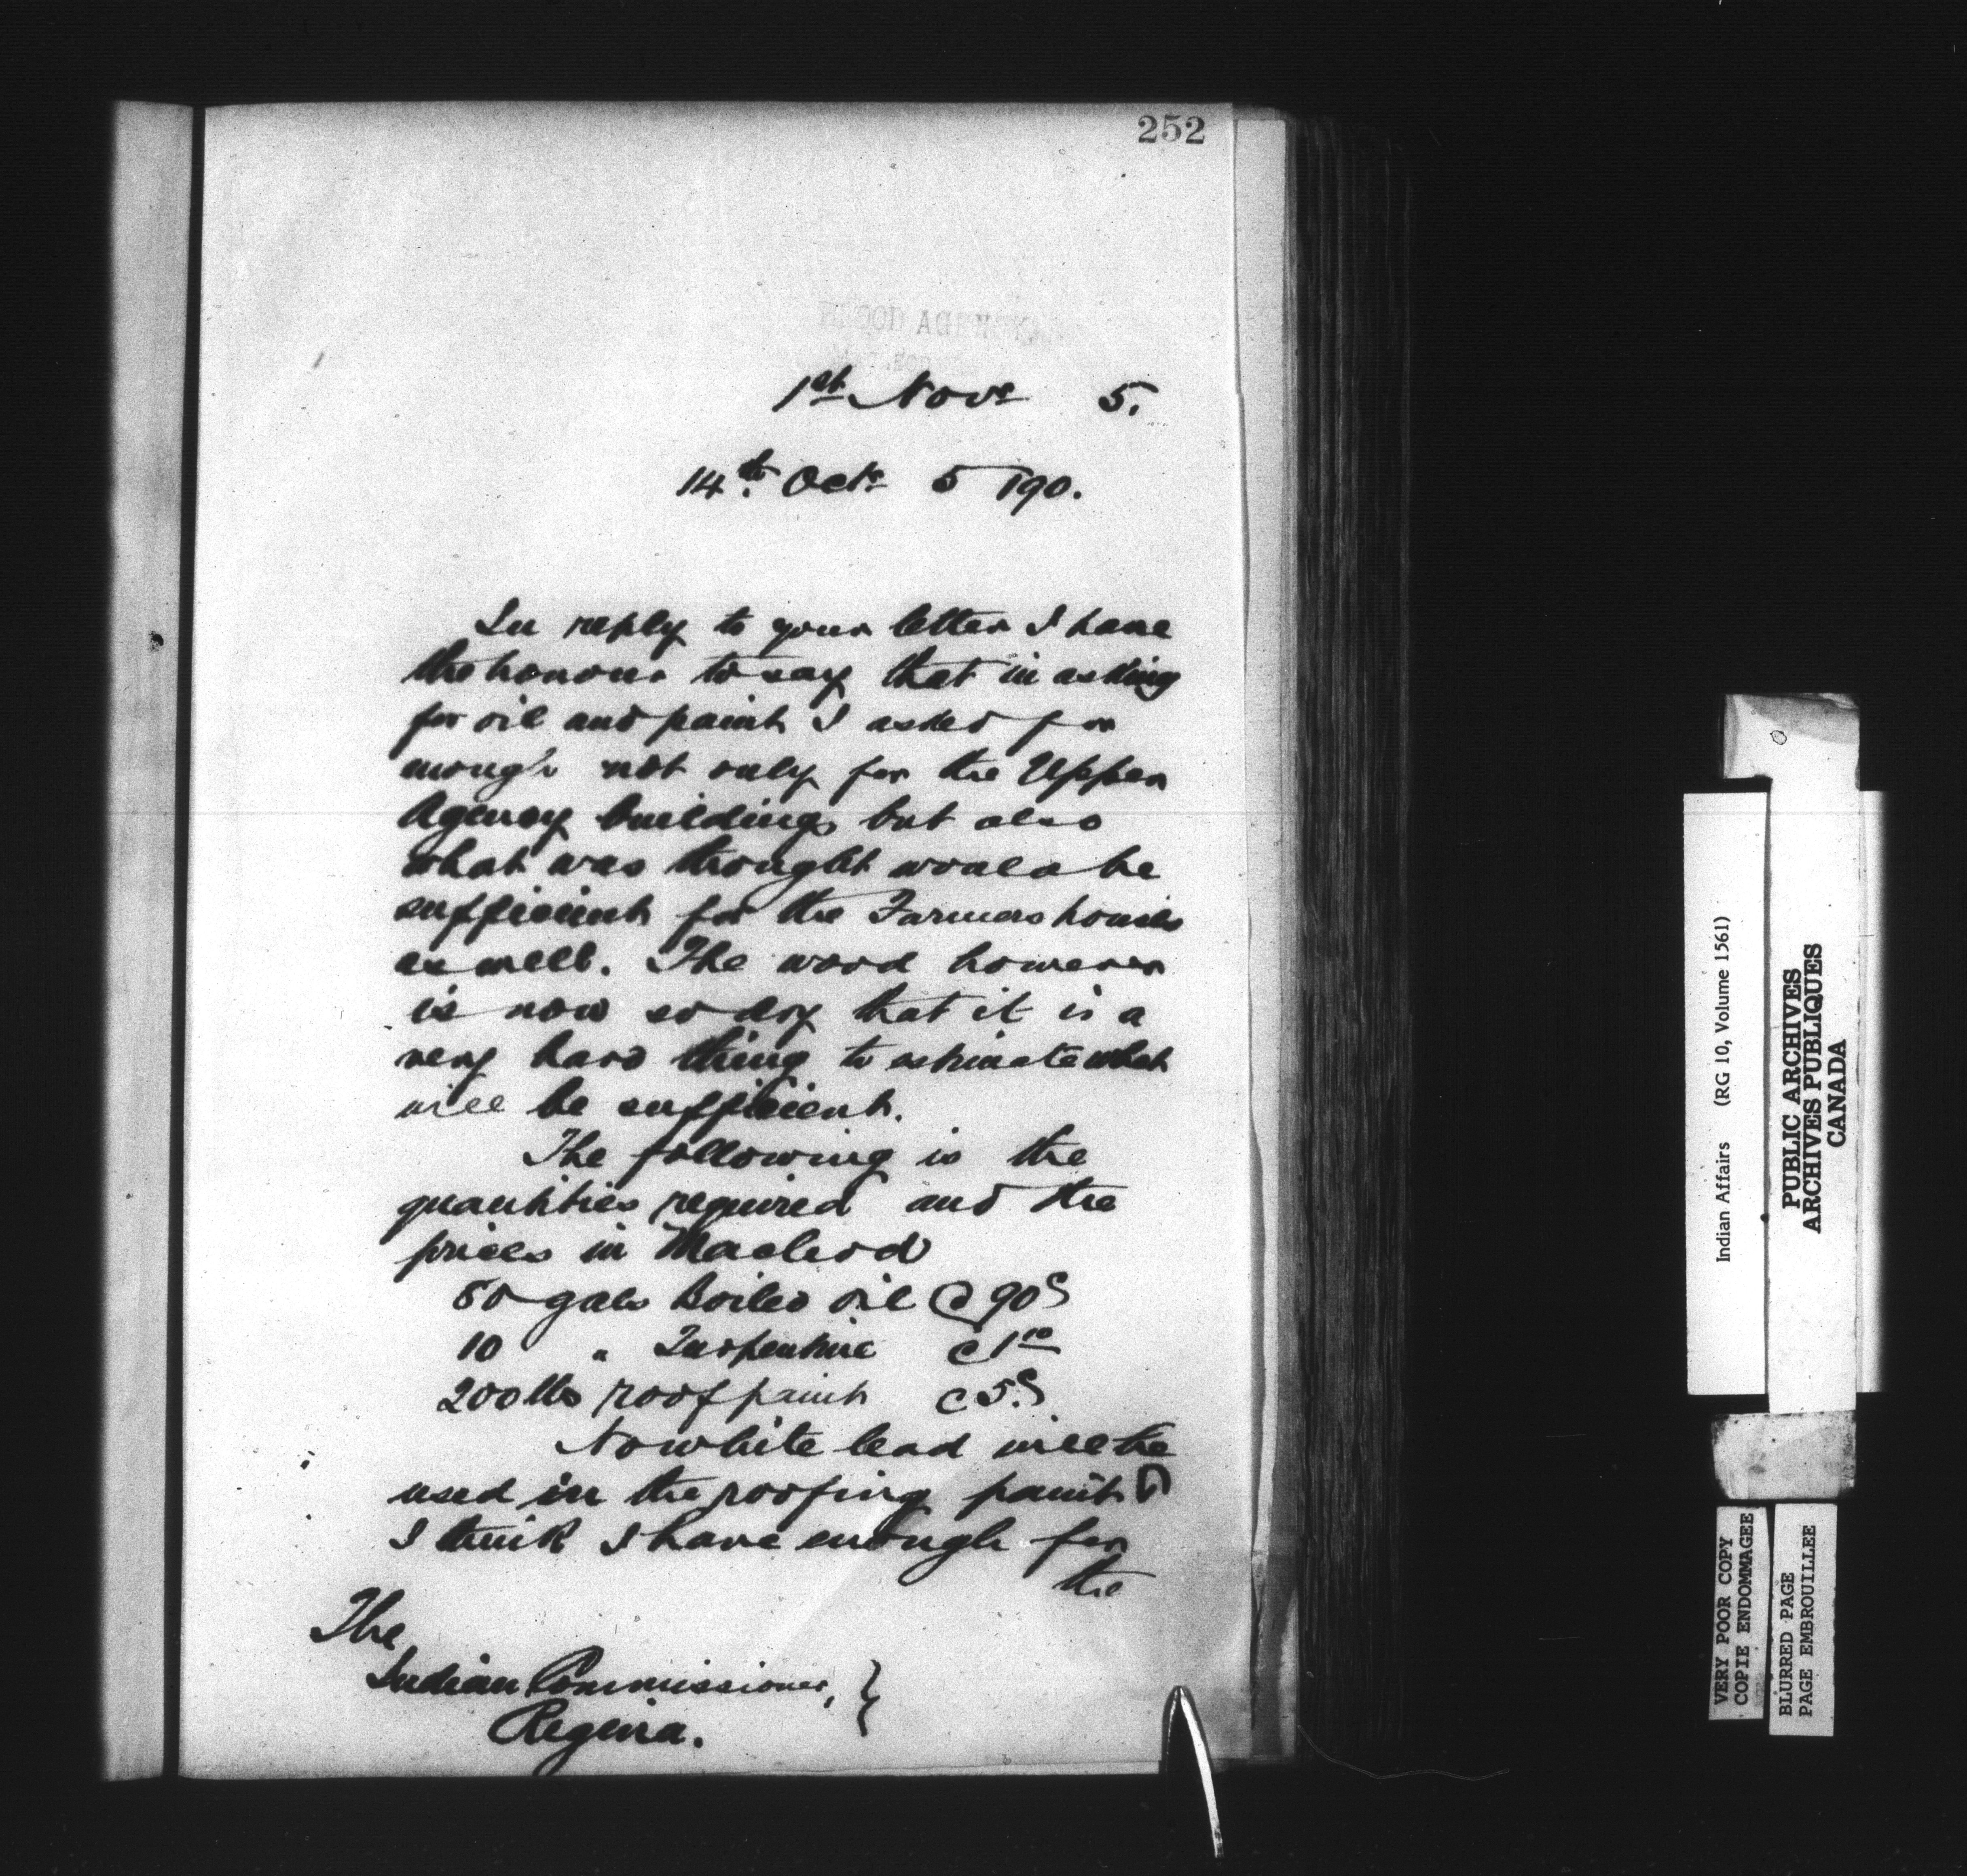 252
BLOOD AGENCY,
1st Novr 5.
14th Octr 5 190.
In reply to your letter I have
the honour to say that in asking
for oil and paint I asked for
enough not only for the Upper
Agency buildings but also
what was thought would be
sufficient for the Farmers houses
as well. The wood however
is now so dry that it is a
very hard thing to estimate what
will be sufficient.
The following is the
quantities required and the
prices in Macleod
80 gals Boiled oil @ 90c
10 " Turpentine @ 1 10
200 lbs roof paint @ 5c
No white lead will be
used in the roofing paint
I think I have enough for
the
The
Indian Commissioner,
Regina.
Indian Affairs (RG 10, Volume 1561)
PUBLIC ARCHIVES
ARCHIVES PUBLIQUES
CANADA
VERY POOR COPY
COPIE ENDOMMAGEE
BLURRED PAGE
PAGE EMBROUILLEE